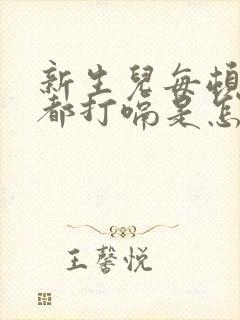 新生兒每頓
都打嗝是怎
王馨悦